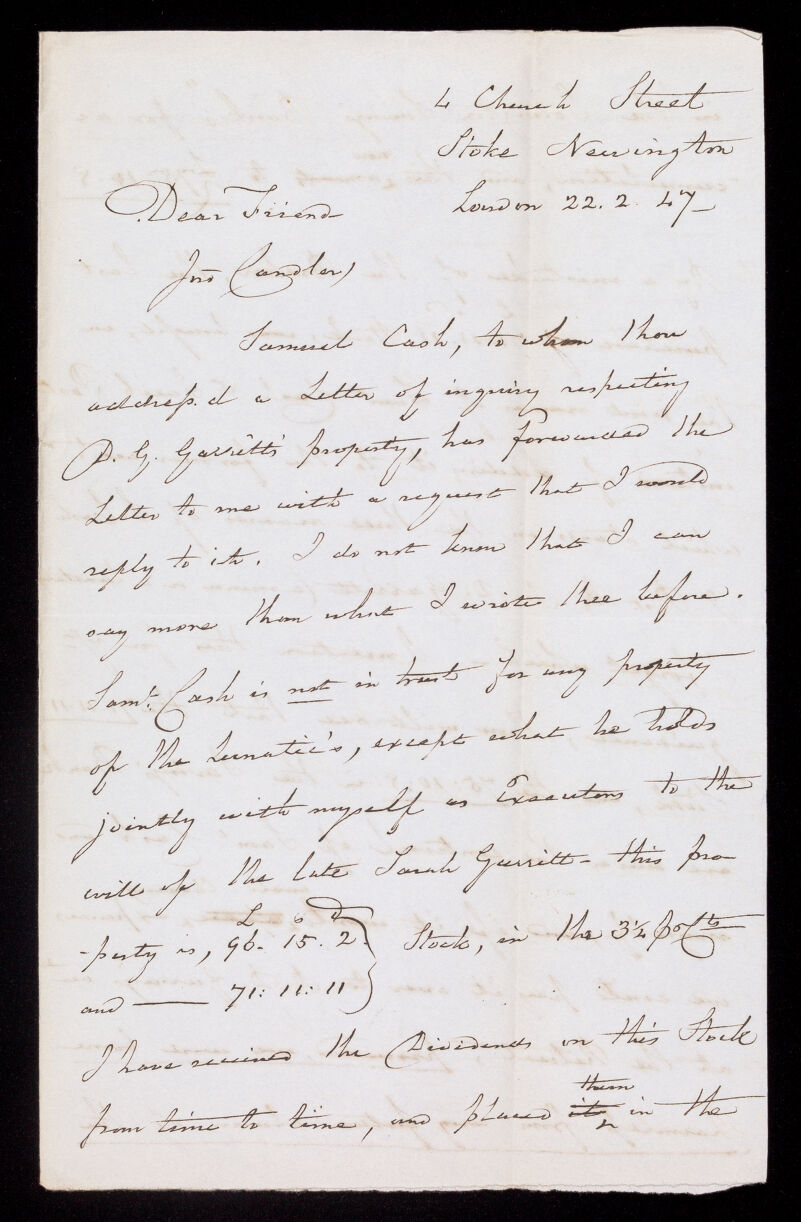 4 Church Street
Stoke Newington
London 22. 2. 47
Dear Friend
Jno Candler,
Samuel Cash, to whom thou
address.d a Letter of inquiry respecting
D. G. Garritt's property, has forwarded the
Letter to me with a request that I would
reply to it. I do not know that I can
say more than what I wrote thee before.
Saml. Cash is not in trust for any property
of the Lunatic's, except what he holds
jointly with myself as Executors to the
will of the late Sarah Garritt - this pro
-perty is, £ 96. s 15. d 2. } Stock, in the 3¼ pr Cts
and — 71: 11: 11
I have received the Dividends on this Stock
from time to time, and placed it them in the